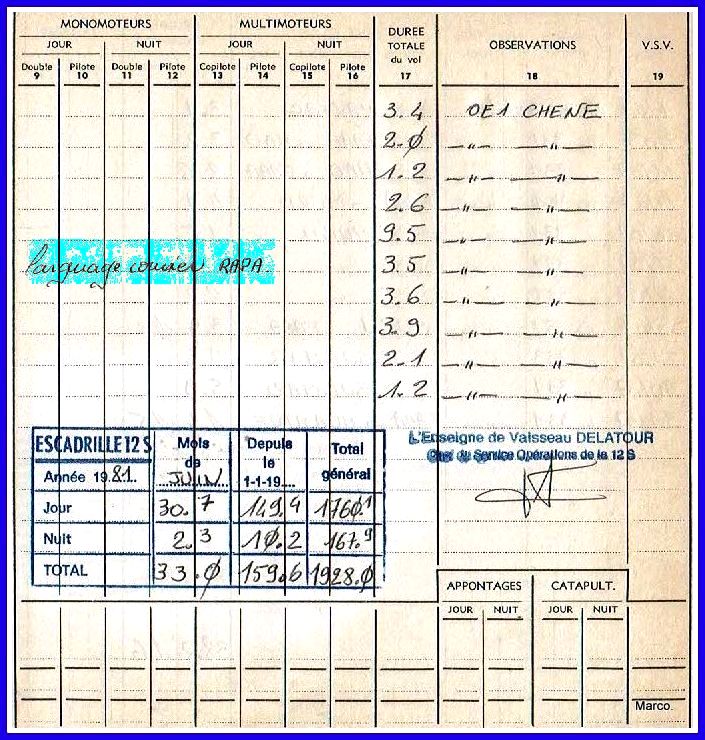 MONOMOTEURS MULTIMOTEURS DUREE TOTALE du vol OBSERVATIONS V.S.V.
JOUR NUIT JOUR NUIT
Double Pilote Double Pilote Copilote Pilote Copilote Pilote
9 10 11 12 13 14 15 16 17 18 19
3.4 OE1 CHENE
2.0 —〃— —〃—
1.2 —〃— —〃—
2.6 —〃— —〃—
9.5 —〃— —〃—
larguage courrier RAPA. 3.5 —〃— —〃—
3.6 —〃— —〃—
3.9 —〃— —〃—
2.1 —〃— —〃—
1.2 —〃— —〃—
L'Enseigne de Vaisseau DELATOUR
Chef du Service Opérations de la 12 S
ESCADRILLE 12 S Mois de JUIN Depuis le 1-1-19.... Total général
Année 1981
Jour 30.7 149.4 1760.1
Nuit 2.3 10.2 167.9
TOTAL 33.0 159.6 1928.0
APPONTAGES CATAPULT.
JOUR NUIT JOUR NUIT
Marco.